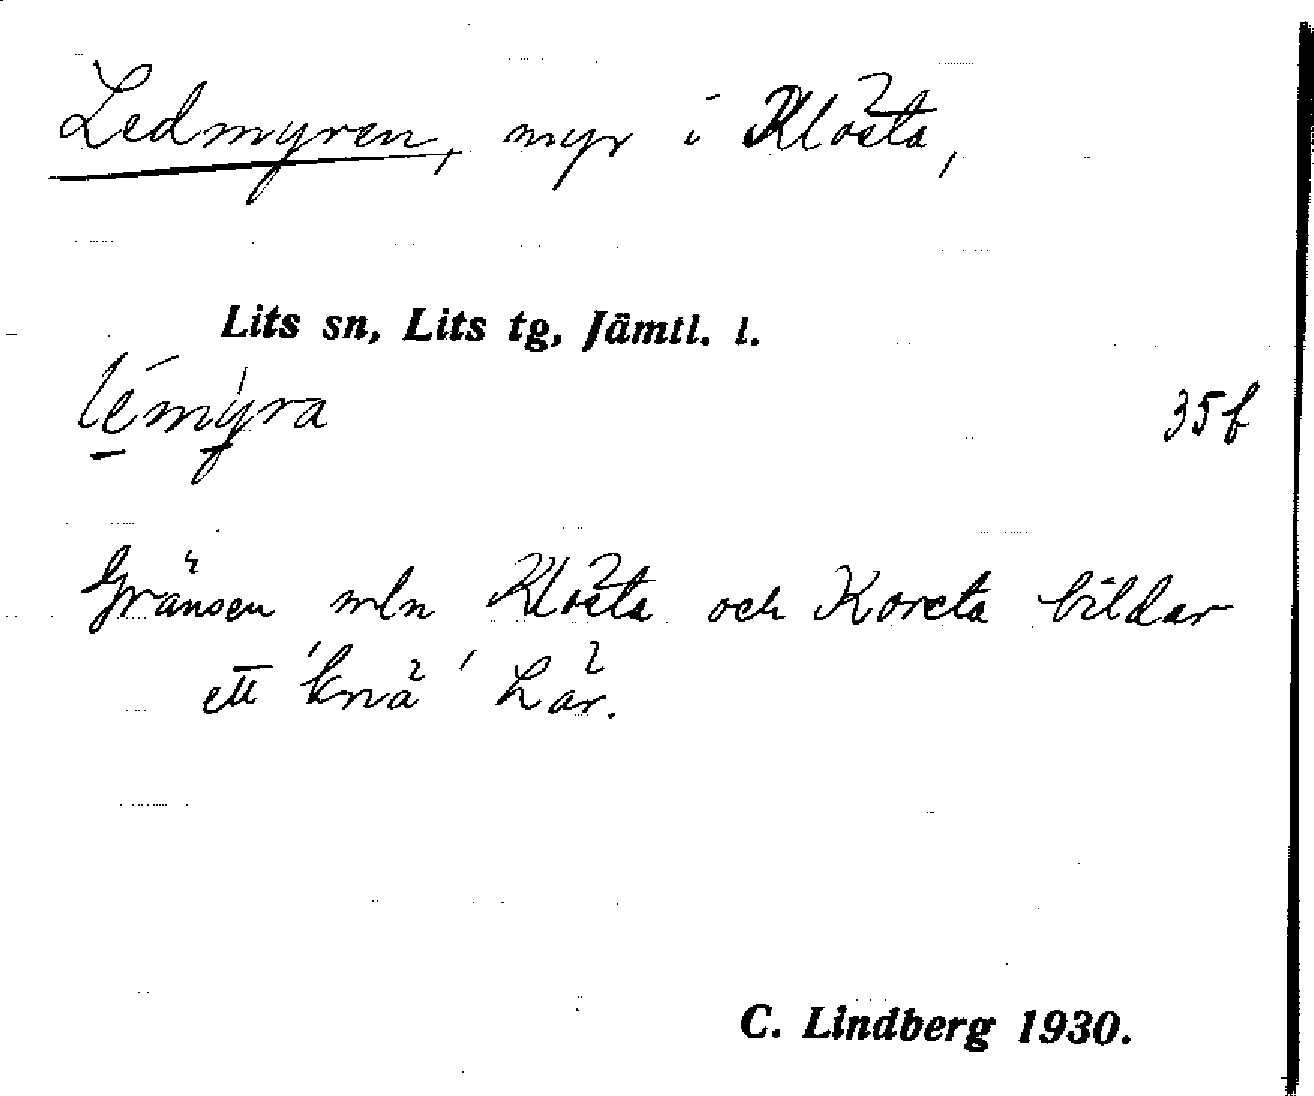 Ledmyren, myr i Klösta,
Lits sn, Lits tg, Jämtl. l.
lémýra 35f
Gränsen mln Klösta och Korsta bildar
ett 'knä' här.
C. Lindberg 1930.